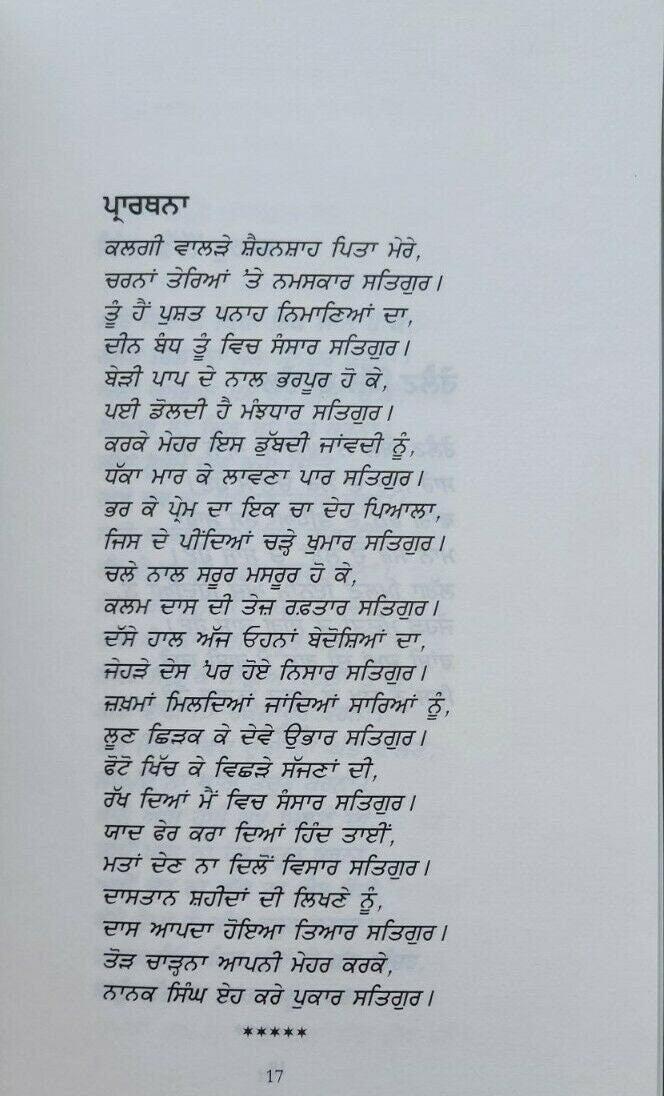 ਪ੍ਰਾਰਥਨਾ
ਕਲਗੀ ਵਾਲੜੇ ਸ਼ੈਹਨਸ਼ਾਹ ਪਿਤਾ ਮੇਰੇ,
ਚਰਨਾਂ ਤੇਰਿਆਂ 'ਤੇ ਨਮਸਕਾਰ ਸਤਿਗੁਰ।
ਤੂੰ ਹੈਂ ਪੁਸ਼ਤ ਪਨਾਹ ਨਿਮਾਣਿਆਂ ਦਾ,
ਦੀਨ ਬੰਧ ਤੂੰ ਵਿਚ ਸੰਸਾਰ ਸਤਿਗੁਰ।
ਬੇੜੀ ਪਾਪ ਦੇ ਨਾਲ ਭਰਪੂਰ ਹੋ ਕੇ,
ਪਈ ਡੋਲਦੀ ਹੈ ਮੰਝਧਾਰ ਸਤਿਗੁਰ।
ਕਰਕੇ ਮੇਹਰ ਇਸ ਡੁੱਬਦੀ ਜਾਂਵਦੀ ਨੂੰ,
ਧੱਕਾ ਮਾਰ ਕੇ ਲਾਵਣਾ ਪਾਰ ਸਤਿਗੁਰ।
ਭਰ ਕੇ ਪ੍ਰੇਮ ਦਾ ਇਕ ਚਾ ਦੇਹ ਪਿਆਲਾ,
ਜਿਸ ਦੇ ਪੀਂਦਿਆਂ ਚੜ੍ਹੇ ਖੁਮਾਰ ਸਤਿਗੁਰ।
ਚਲੇ ਨਾਲ ਸਰੂਰ ਮਸਰੂਰ ਹੋ ਕੇ,
ਕਲਮ ਦਾਸ ਦੀ ਤੇਜ਼ ਰਫ਼ਤਾਰ ਸਤਿਗੁਰ।
ਦੱਸੇ ਹਾਲ ਅੱਜ ਓਹਨਾਂ ਬੇਦੋਸ਼ਿਆਂ ਦਾ,
ਜੇਹੜੇ ਦੇਸ 'ਪਰ ਹੋਏ ਨਿਸਾਰ ਸਤਿਗੁਰ।
ਜ਼ਖ਼ਮਾਂ ਮਿਲਦਿਆਂ ਜਾਂਦਿਆਂ ਸਾਰਿਆਂ ਨੂੰ,
ਲੂਣ ਛਿੜਕ ਕੇ ਦੇਵੇ ਉਭਾਰ ਸਤਿਗੁਰ।
ਫੋਟੋ ਖਿੱਚ ਕੇ ਵਿਛੜੇ ਸੱਜਣਾਂ ਦੀ,
ਰੱਖ ਦਿਆਂ ਮੈਂ ਵਿਚ ਸੰਸਾਰ ਸਤਿਗੁਰ।
ਯਾਦ ਫੇਰ ਕਰਾ ਦਿਆਂ ਹਿੰਦ ਤਾਈਂ,
ਮਤਾਂ ਦੇਣ ਨਾ ਦਿਲੋਂ ਵਿਸਾਰ ਸਤਿਗੁਰ।
ਦਾਸਤਾਨ ਸ਼ਹੀਦਾਂ ਦੀ ਲਿਖਣੇ ਨੂੰ,
ਦਾਸ ਆਪਦਾ ਹੋਇਆ ਤਿਆਰ ਸਤਿਗੁਰ।
ਤੋੜ ਚਾੜ੍ਹਨਾ ਆਪਨੀ ਮੇਹਰ ਕਰਕੇ,
ਨਾਨਕ ਸਿੰਘ ਏਹ ਕਰੇ ਪੁਕਾਰ ਸਤਿਗੁਰ।
*****
17